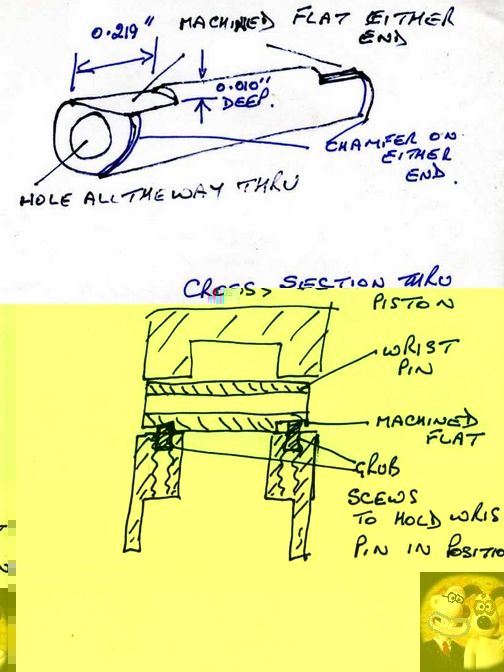 MACHINED FLAT EITHER
END
0.219"
0.010"
DEEP.
CHAMFER ON
EITHER
END.
HOLE ALL THE WAY THRU
SECTION THRU
PISTON
WRIST
PIN
MACHINED
FLAT
GRUB
SCEWS
TO HOLD WRIS
PIN IN POSITIO